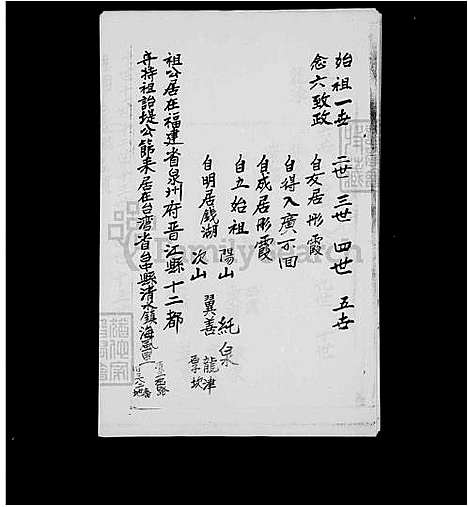 始祖一世 二世 三世 四世 五世
念六致政
自友居彤霞
自得入廣不回
自成居彤霞
自立始祖 陽山 純泉
自明居錢湖 翼善 龍津
次山 厚坎
祖公居在福建省泉州府晋江縣十二都
弃持祖諂堤公節来居在台湾省台中縣清水鎮海風里
FamilySearch